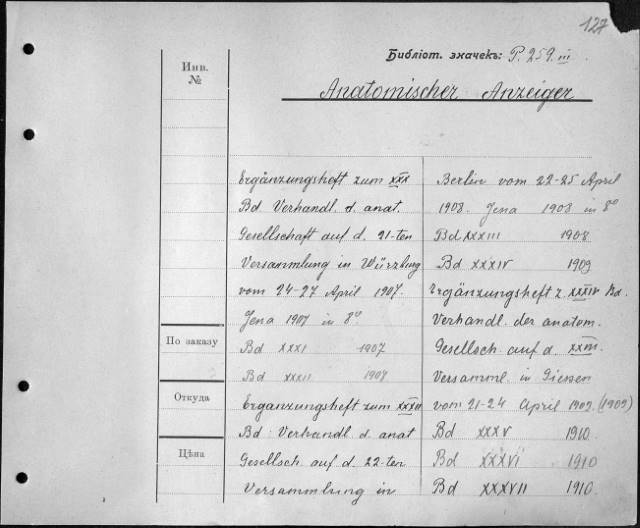 127
Библіот. значекъ: P. 259 III
Инв.
№
Anatomischer Anzeiger
Ergänzungsheft zum XXX
Bd Verhandl. d. anat.
Gesellschaft auf d. 21-ten
Versammlung in Würzburg
vom 24-27 April 1907.
Jena 1907 in 8º
Bd XXXI 1907
Bd XXXII 1908
Ergänzungsheft zum XXXII
Bd. Verhandl. d. anat
Gesellsch. auf d. 22-ten
Versammlung in
Berlin vom 22-25 April
1908. Jena 1908 in 8º
Bd XXXIII 1908
Bd XXXIV 1909
Ergänzungsheft z. XXXIV Bd.
Verhandl. der anatom.
Gesellsch. auf d. XXIII
Versamml. in Giessen
vom 21-24 April 1909. (1909)
Bd XXXV 1910.
Bd XXXVI 1910
Bd XXXVII 1910.
По заказу
Откуда
Цѣна